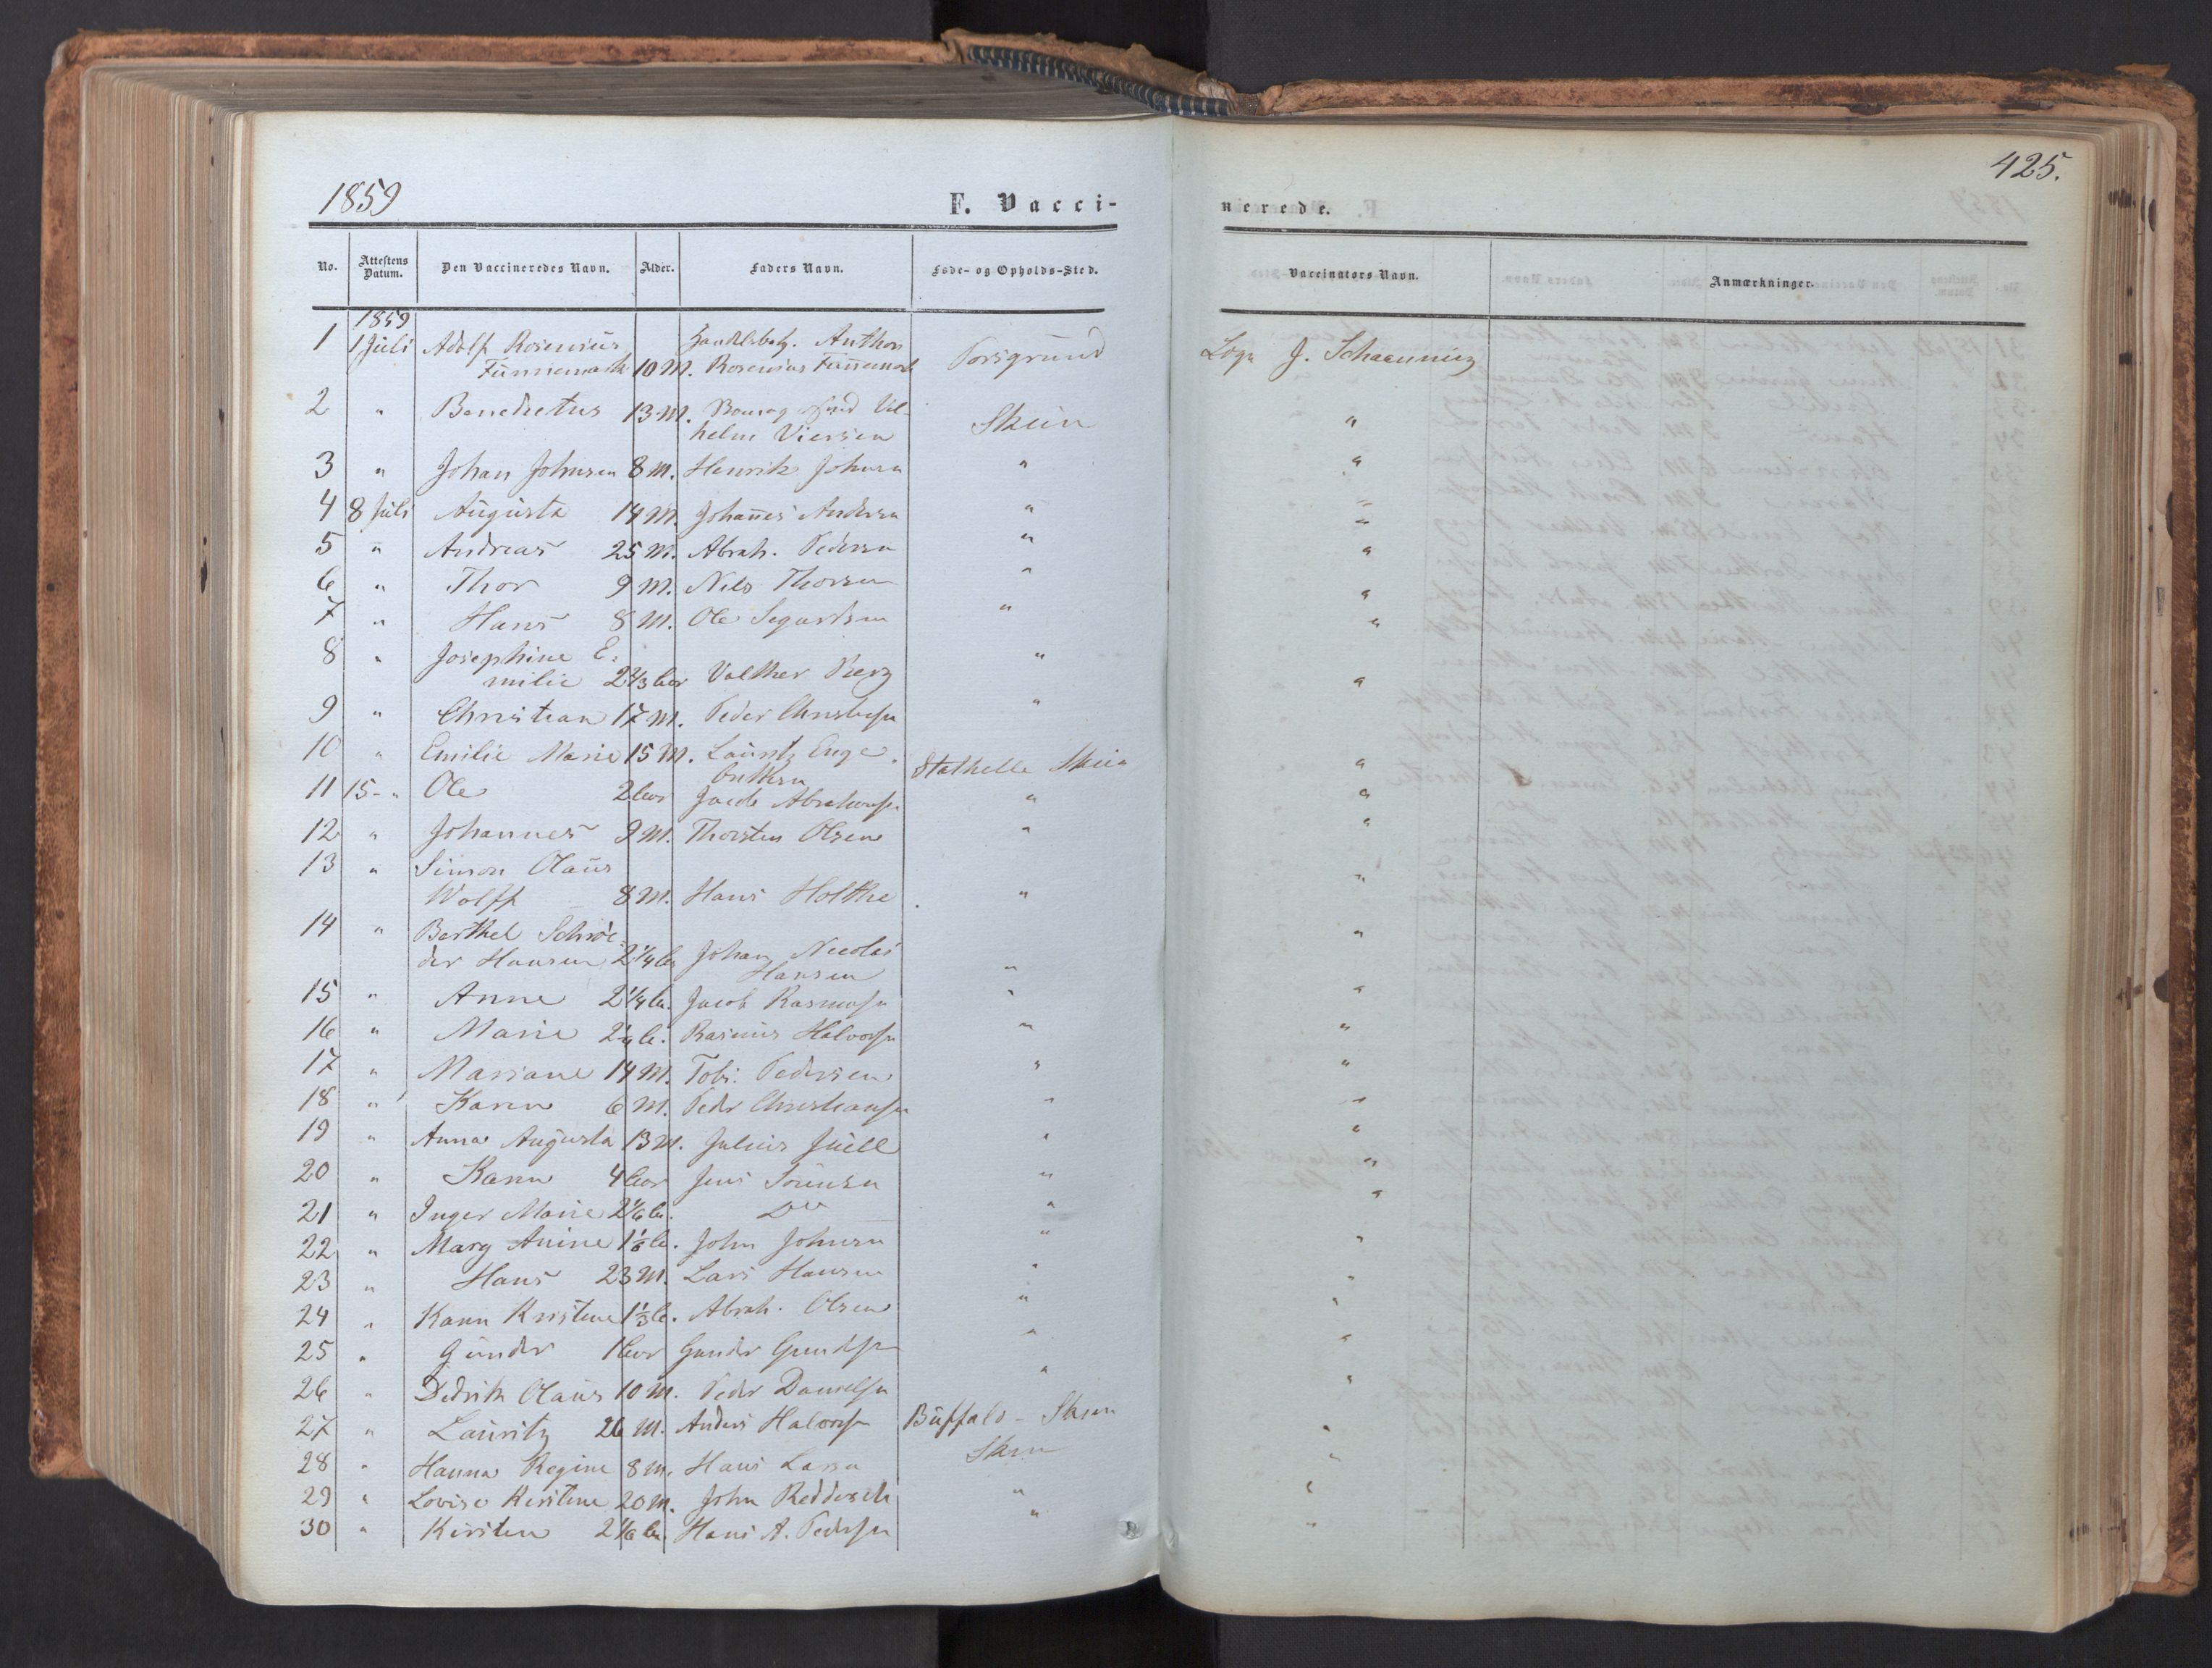 1859
F. Vacci-
nerede.
425.
No. Attestens Datum. Den Vaccineredes Navn. Alder. Faders Navn. Føde- og Opholds-Sted. Vaccinators Navn. Anmærkninger.
1859
1 1 Juli Adolf Rosenius Anthon Porsgrund J. Schaanning
10 M. Rosenius
2 " Benedictus 13 M. Vil-
helm Viersen Skien "
3 " Johan Johnsen 8 M. Henrik Johnsen " "
4 8 Juli Augusta 14 M. Johannes Andersen " "
5 " Andreas 25 M. Abrah. Pedersen " "
6 " Thor 9 M. Nils Thorsen " "
7 " Hans 8 M. Ole " "
8 " Josephine E-
milie 2 2/3 Aar Valther " "
9 " Christian 17 M. Peder " "
10 " Emilie Marie 15 M. Lauritz Enge-
Stathelle Skien "
11 15 - " Ole 2 Aar Jacob Abrahamsen " "
12 " Johannes 9 M. Thorsten Olsen " "
13 " Simon Olaus
Wolff 8 M. Hans Holthe " "
14 " Berthel Schrø-
der Hansen 2 1/4 Johan Nicolai
Hansen " "
15 " Anne 2 1/4 Jacob Rasmussen " "
16 " Marie Rasmus Halvorsen " "
17 " Mariane 14 M. Tobi. Pedersen " "
18 " Karen 6 M. Peder Christiansen " "
19 " Anna Augusta 13 M. Julius Juell " "
20 " Karen 4 Aar Jens Sörensen " "
21 " Inger Marie 2 1/6 Do " "
22 " Mary Anine 1 1/6 John Johnsen " "
23 " Hans 23 M. Lars Hansen " "
24 " Karen Kristine 1 1/3 Abrah. Olsen " "
25 " Gunder 1 Aar Gunder " "
26 " Didrik Olaus 10 M. Peder Danielsen " "
27 " Lauritz 26 M. Anders Halvorsen Buffalo - Skien "
28 " Hanna Regine 8 M. Hans Larsen Skien "
29 " Lovise Kirstine 20 M. John " "
30 " Kirsten 2 1/6 Hans A. Pedersen " "